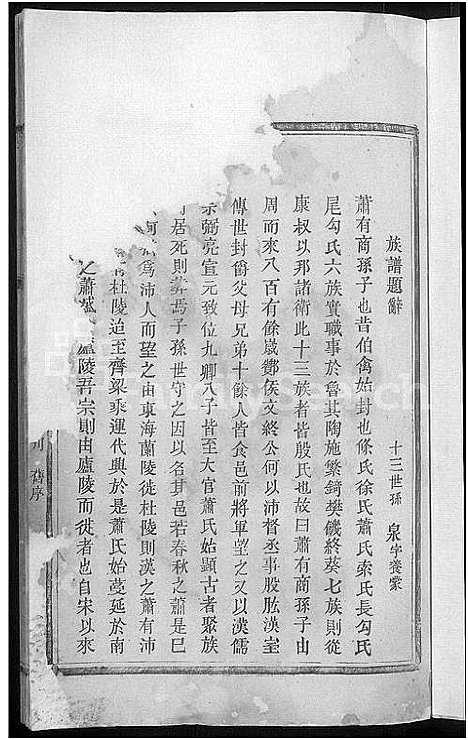 族譜題辭
十三世孫 泉字養蒙
蕭有商孫子也昔伯禽始封也條氏徐氏蕭氏索氏長勾氏
尾勾氏六族實職事於魯其陶施繁錡樊磯終葵七族則從
康叔以邦諸衛此十三族者皆殷氏也故曰蕭有商孫子由
周而來八百有餘歲酇侯文終公何以沛督丞事股肱漢室
傳世封爵父母兄弟十餘人皆食邑前將軍望之又以漢儒
宗弼亮宣元致位九卿八子皆至大官蕭氏始顯古者聚族
居死則葬焉子孫世守之因以名其邑若春秋之蕭是已
爲沛人而望之由東海蘭陵徙杜陵則漢之蕭有沛
杜陵迨至齊梁乘運代興於是蕭氏始蔓延於南
之蕭 廬陵吾宗則由廬陵而徙者也自宋以來
舊序